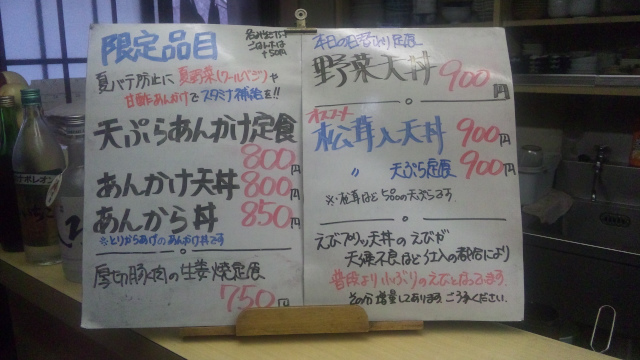 限定品目
夏バテ防止に夏野菜(ツールベジ)や
甘酢あんかけでスタミナ補給を!!
天ぷらあんかけ定食
800円
あんかけ天丼 800円
あんから丼 850円
※とりからあげのあんかけ丼です
厚切豚肉の生姜焼定食
750円
本日の日替わり定食
野菜天丼 900円
オススメ
松茸入天丼 900円
〃 天ぷら定食 900円
※松茸ほど5品の天ぷらです
えびプリッ天丼のえびが
天候不良など仕入の都合により
普段より小ぶりのえびとなってます.
その分増量してあります ご了承ください.